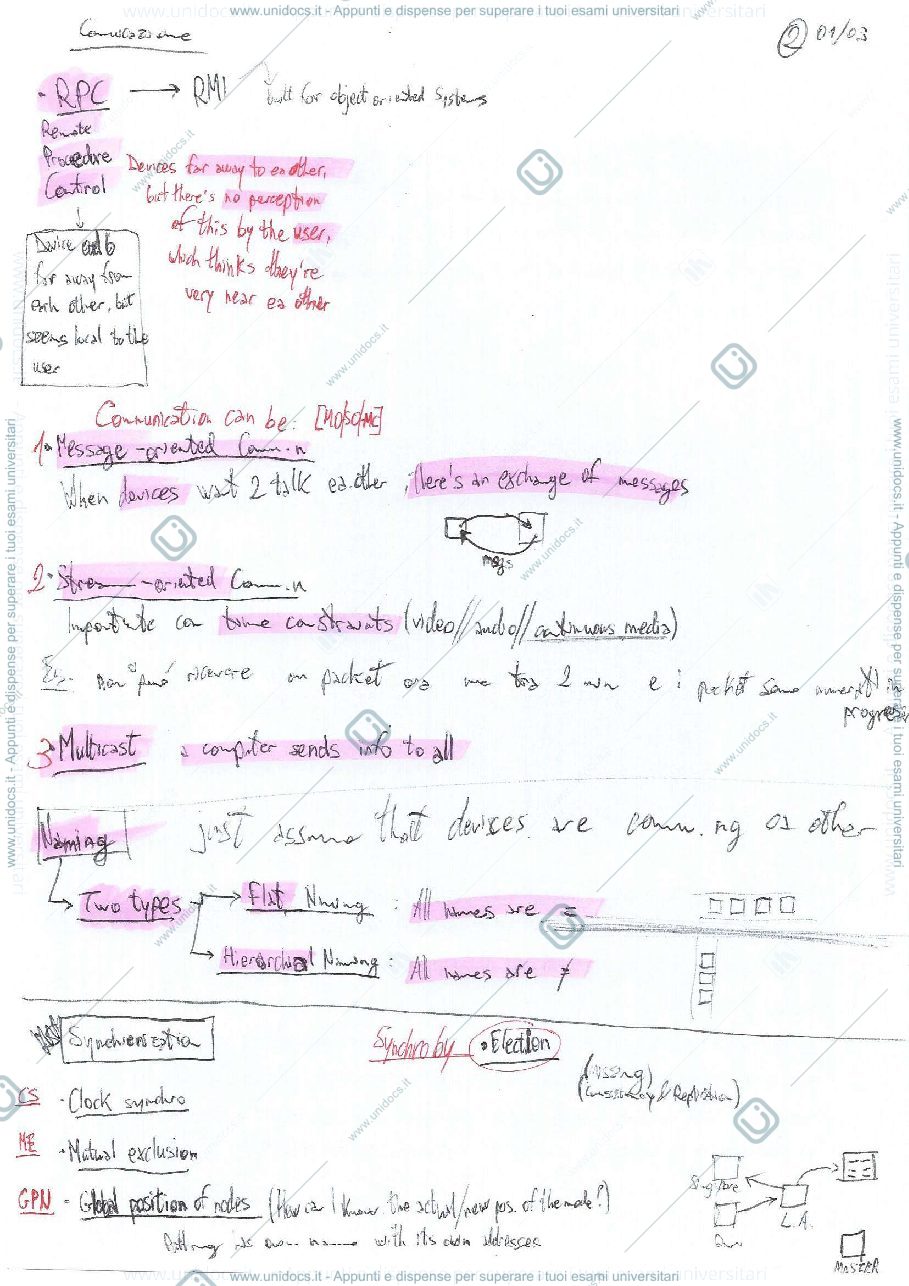 www.unidocs.it - Appunti e dispense per superare i tuoi esami universitari
Comunicazione
2 01/03
· RPC → RMI built for object oriented systems
Remote
Procedure
Control
Devices far away to ea other,
but there's no perception
of this by the user,
which thinks they're
very near ea other
Device a and b
far away from
each other, but
seems local to the
user
Communication can be: [MO/SO/MC]
1. Message-oriented Comm.n
When devices want 2 talk ea. other, there's an exchange of messages
msgs
2. Stream-oriented Comm.n
Importante con time constraints (video//audio//continuous media)
Es. non può ricevere un packet ora uno tra 2 min e i packet sono numerati in
progress
3. Multicast a computer sends info to all
Naming just assume that devices are comm.ng ea other
Two types
Flat Naming : All names are =
Hierarchical Naming : All names are ≠
Synchronization
Synchro by · Election
(missing)
(Consistency & Replication)
CS · Clock synchro
ME · Mutual exclusion
GPN · Global position of nodes (How can I know the actual/new pos. of the node?)
its own name with its own addresses
Singapore
L.A.
MASTER
www.unidocs.it - Appunti e dispense per superare i tuoi esami universitari